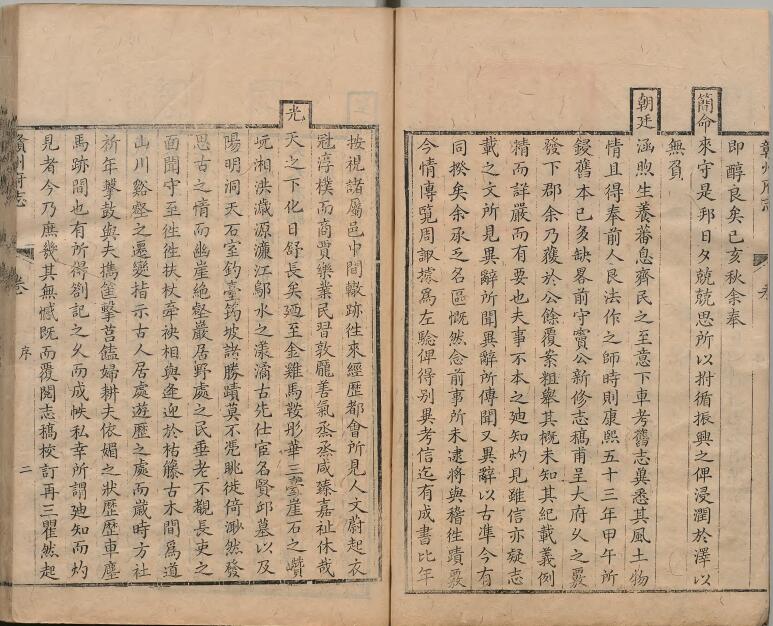 贛州府志
卷
即醇良矣己亥秋余奉
簡命來守是邦日夕兢兢思所以拊循振興之俾浸潤於澤以
無負
朝廷涵煦生養蕃息齊民之至意下車考舊志冀悉其風土物
情且得奉前人良法作之師時則康熙五十三年甲午所
鋟舊本已多缺畧前守竇公新修志稿甫呈大府久之覈
發下郡余乃獲於公餘覆案粗舉其概未知其紀載義例
精而詳嚴而有要也夫事不本之廸知灼見雖信亦疑志
載之文所見異辭所聞異辭所傳聞又異辭以古準今有
同揆矣余承乏名區慨然念前事所未逮將與稽徃蹟覈
今情傳覽周諏據為左驗俾得別異考信迄有成書比年
按視諸屬邑中間轍跡徃來經歷都會所見人文蔚起衣
冠淳樸而商賈樂業民習敦龐善氣烝烝咸臻嘉祉休哉
光天之下化日舒長矣廼至金雞馬鞍彤華三臺崖石之巑
岏湘洪瀫源濂江鄔水之漾潏古先仕宦名賢邱墓以及
陽明洞天石室釣臺筠坡諸勝蹟莫不凭眺徙倚渺然發
思古之情而幽崖絕壑巖居野處之民垂老不覩長吏之
面聞守至徃徃扶杖牽袂相與逢迎於枯藤古木間為道
山川谿壑之遷變指示古人居處遊歷之處而歲時方社
祈年擊鼓與夫攜筐擊莒饁婦耕夫依媚之狀歷歷車塵
馬跡間也有所得劄記之久而成帙私幸所謂廸知而灼
見者今乃庶幾其無憾既而覆閱志稿校訂再三瞿然起
贛州府志
卷
序
二